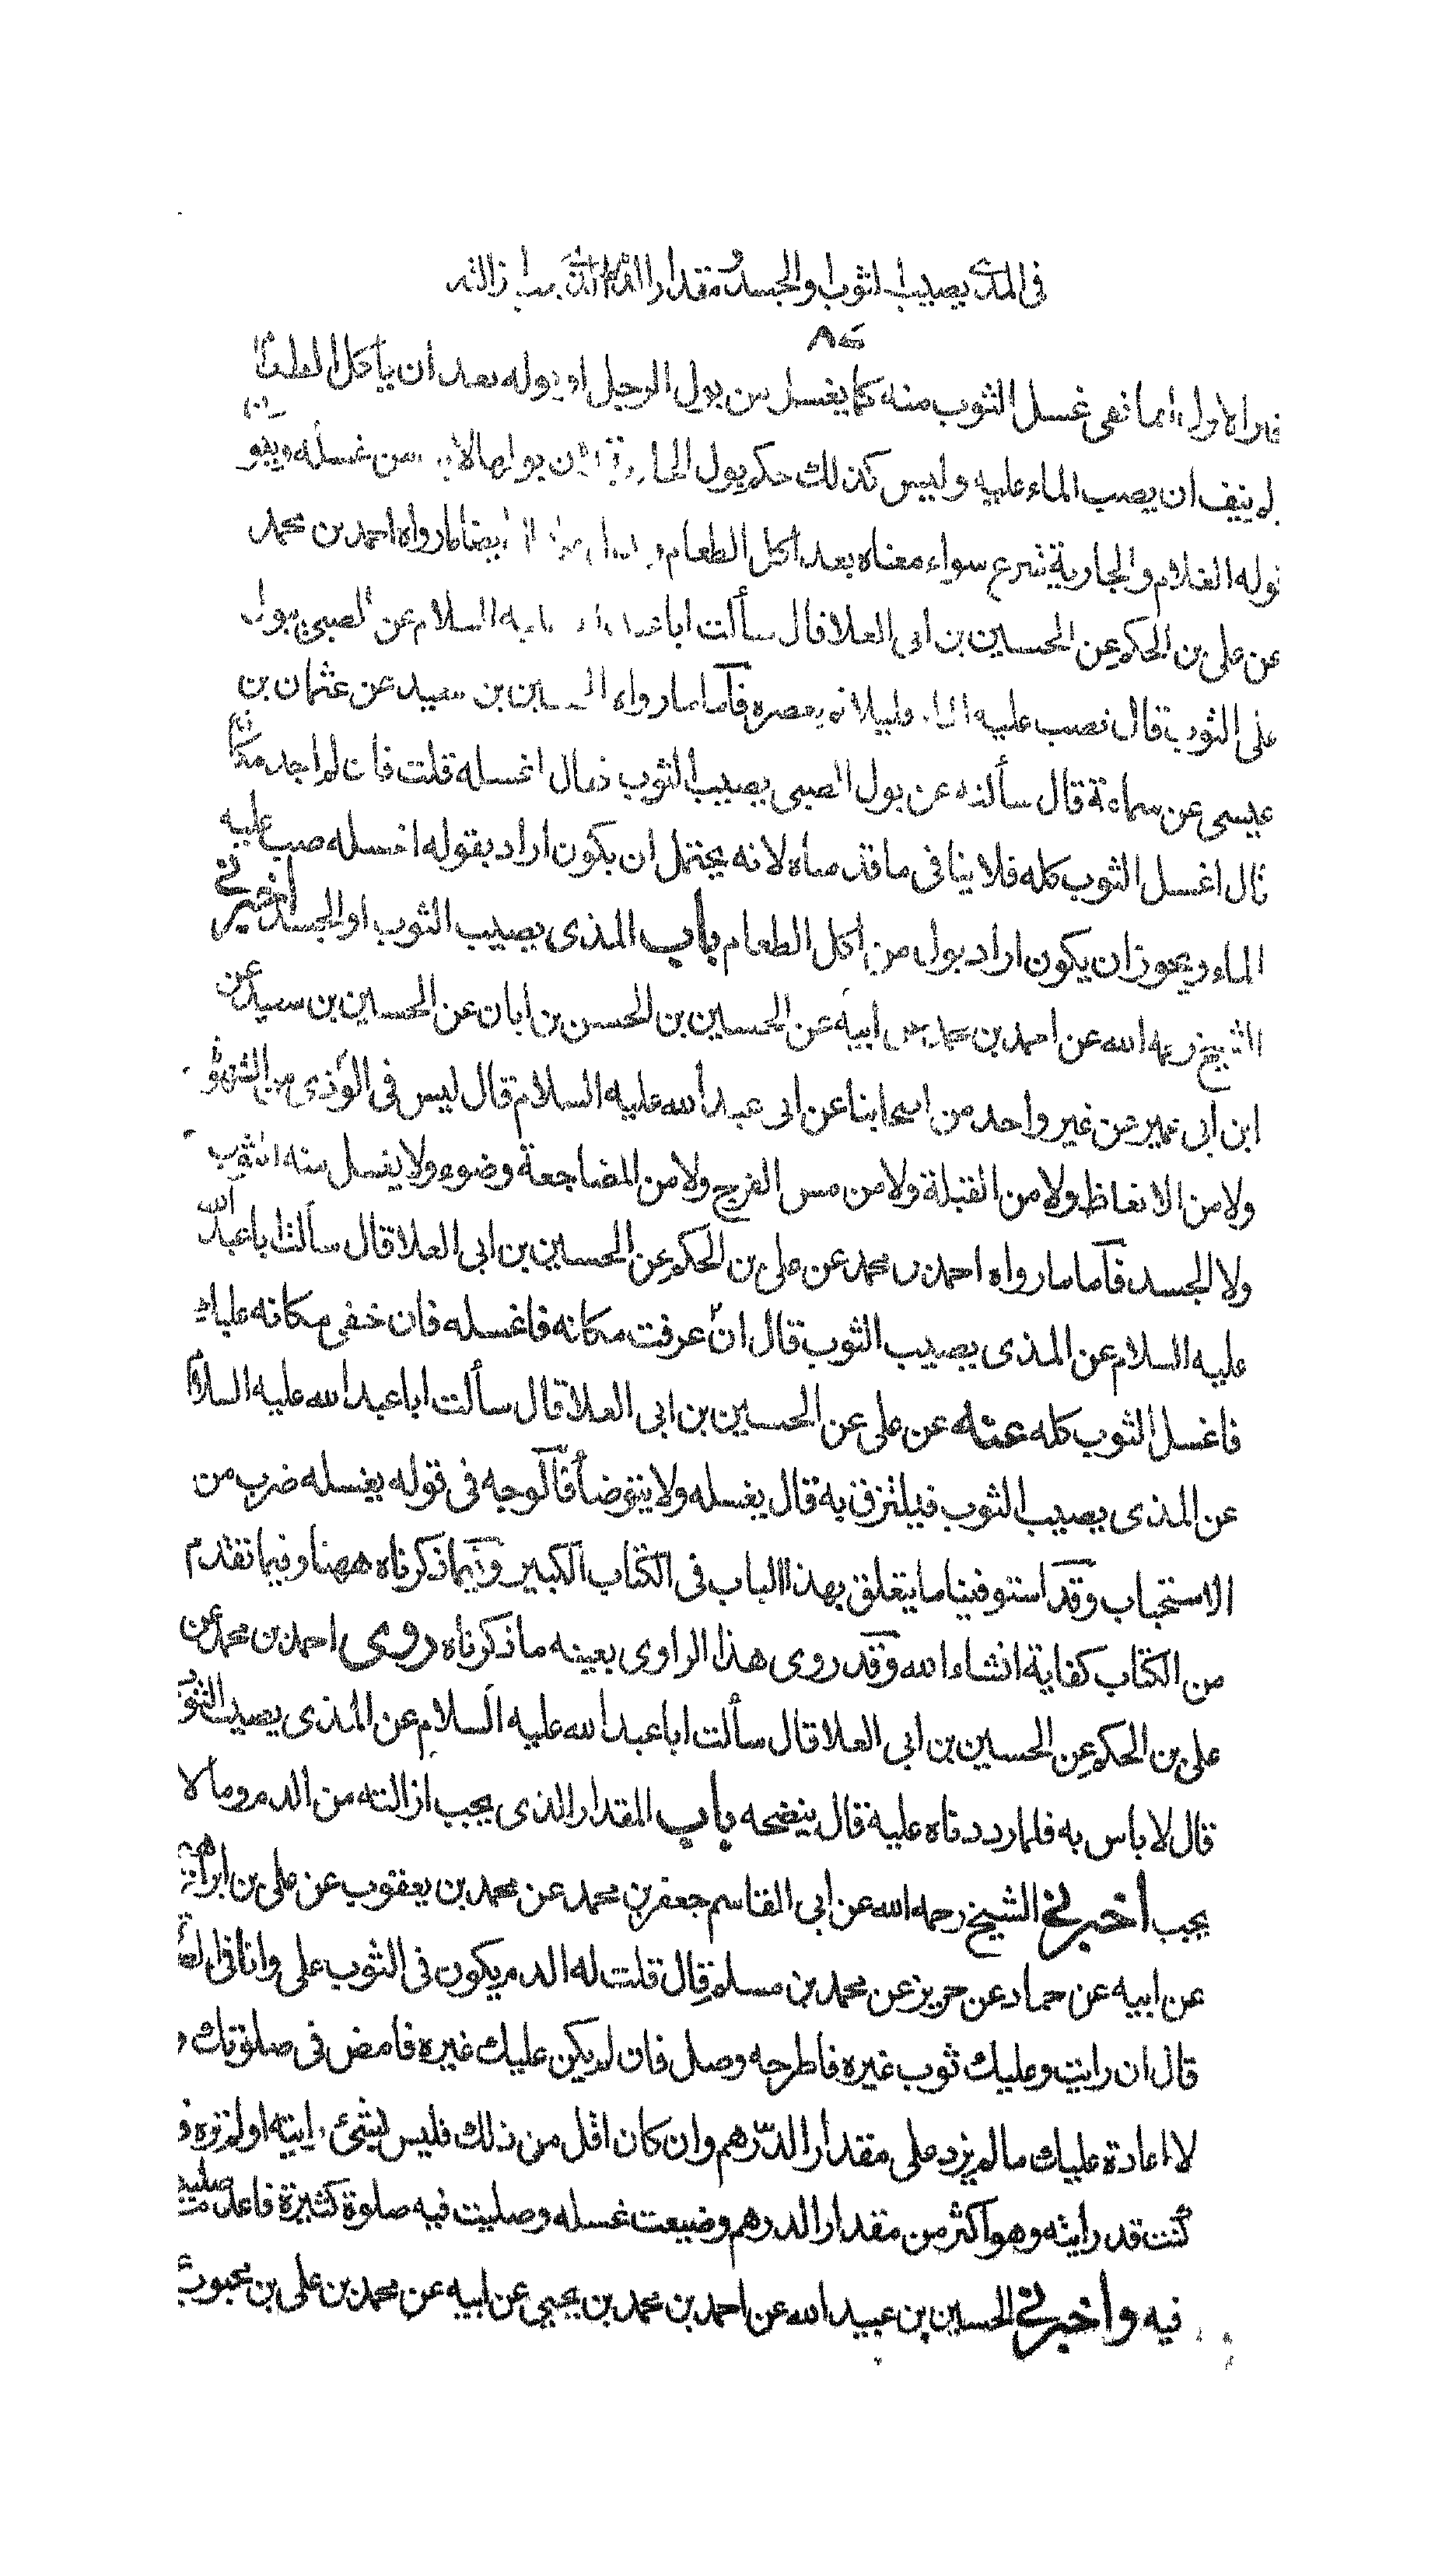 فى المذى يصيب الثوب او الجسد و مقدار الذى يجب ازالته
٨٤
الاول انما نفى غسل الثوب منه كما يغسل من بول الرجل او بوله بعد ان يأكل الطعام
لم ينف ان يصب الماء عليه وليس كذلك حكم بول الجارية بولها لا من غسله و
قوله الغلام والجارية شرع سواء معناه بعد اكل الطعام ايضا مارواه احمد بن محمد
عن على بن الحكم عن الحسين بن ابى العلا قال سألت ابا عليه السلام عن الصبى يبول
على الثوب قال تصب عليه الماء قليلا ثم يعصره فاما مارواه الحسين بن سعيد عن عثمان بن
عيسى عن سماعة قال سألته عن بول الصبى يصيب الثوب فقال اغسله قلت فان لم اجد مكانه
قال اغسل الثوب كله فلا ينافى ما قدمناه لانه يحتمل ان يكون اراد بقوله اغسله صب عليه
الماء ويجوز ان يكون اراد بول من اكل الطعام باب المذى يصيب الثوب او الجسد اخبرنى
الشيخ رحمه الله عن احمد بن محمد عن ابيه عن الحسين بن الحسن بن ابان عن الحسين بن سعيد عن
ابن ابى عمير عن غير واحد من اصحابنا عن ابى عبد الله عليه السلام قال ليس فى المذى من الشهوة
ولا من الانعاظ ولا من القبلة ولا من مس الفرج ولا من المضاجعة وضوء ولا يغسل منه الثوب
ولا الجسد فاما مارواه احمد بن محمد عن على بن الحكم عن الحسين بن ابى العلا قال سألت ابا عبد الله
عليه السلام عن المذى يصيب الثوب قال ان عرفت مكانه فاغسله فان خفى مكانه عليك
فاغسل الثوب كله عنه عن على عن الحسين بن ابى العلا قال سألت ابا عبد الله عليه السلام
عن المذى يصيب الثوب فيلتزق به قال يغسله ولا يتوضأ فالوجه فى قوله يغسله ضرب من
الاستحباب وقد استوفينا ما يتعلق بهذا الباب فى الكتاب الكبير وفيما ذكرناه ههنا وفيما تقدم
من الكتاب كفاية انشاء الله وقد روى هذا الراوى بعينه ما ذكرناه روى احمد بن محمد عن
على بن الحكم عن الحسين بن ابى العلا قال سألت ابا عبد الله عليه السلام عن المذى يصيب الثوب
قال لا باس به فلما رددناه عليه قال ينضحه باب المقدار الذى يجب ازالته من الدم وما لا
يجب اخبرنى الشيخ رحمه الله عن ابى القاسم جعفر بن محمد عن محمد بن يعقوب عن على بن ابراهيم
عن ابيه عن حماد عن حريز عن محمد بن مسلم قال قلت له الدم يكون فى الثوب على وانا فى الصلوة
قال ان رايت وعليك ثوب غيره فاطرحه وصل فان لم يكن عليك غيره فامض فى صلوتك و
لا اعادة عليك ما لم يزد على مقدار الدرهم وان كان اقل من ذلك فليس بشئ رايته او لم تره و
كنت قد رايته وهو اكثر من مقدار الدرهم وضيعت غسله وصليت فيه صلوة كثيرة فاعد ما صليت
فيه واخبرنى الحسين بن عبيد الله عن احمد بن محمد بن يحيى عن ابيه عن محمد بن على بن محبوب